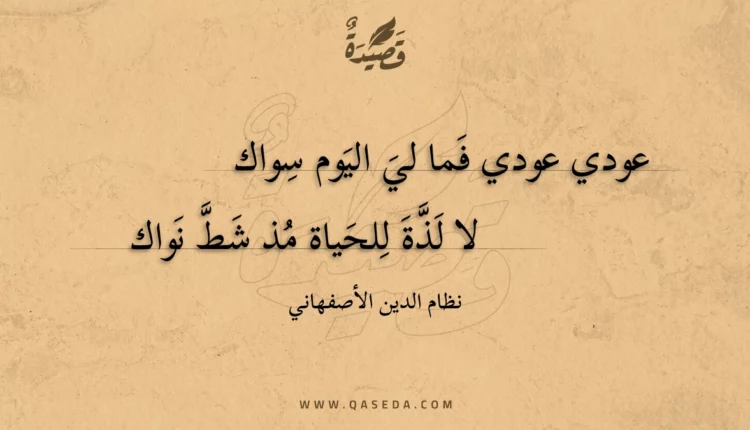 قَصِيْدَةٌ
عودي عودي فَما ليَ اليَوم سِواك
لا لَذَّةَ لِلحَياة مُذ شَطَّ نَواك
نظام الدين الأصفهاني
WWW.QASEDA.COM